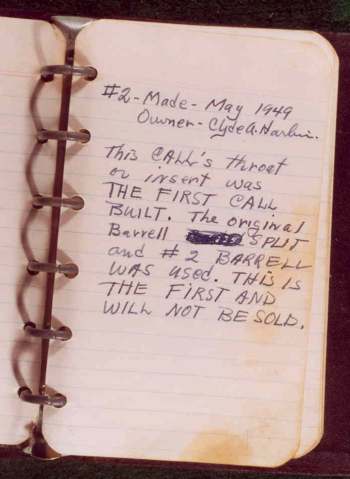 #2-Made- May 1949
Owner- Clyde A. Harbin.
This CALL's throat
or insert was
THE FIRST CALL
BUILT. The original
Barrell SPLIT
and #2 BARRELL
WAS used. THIS IS
THE FIRST AND
WILL NOT BE SOLD.